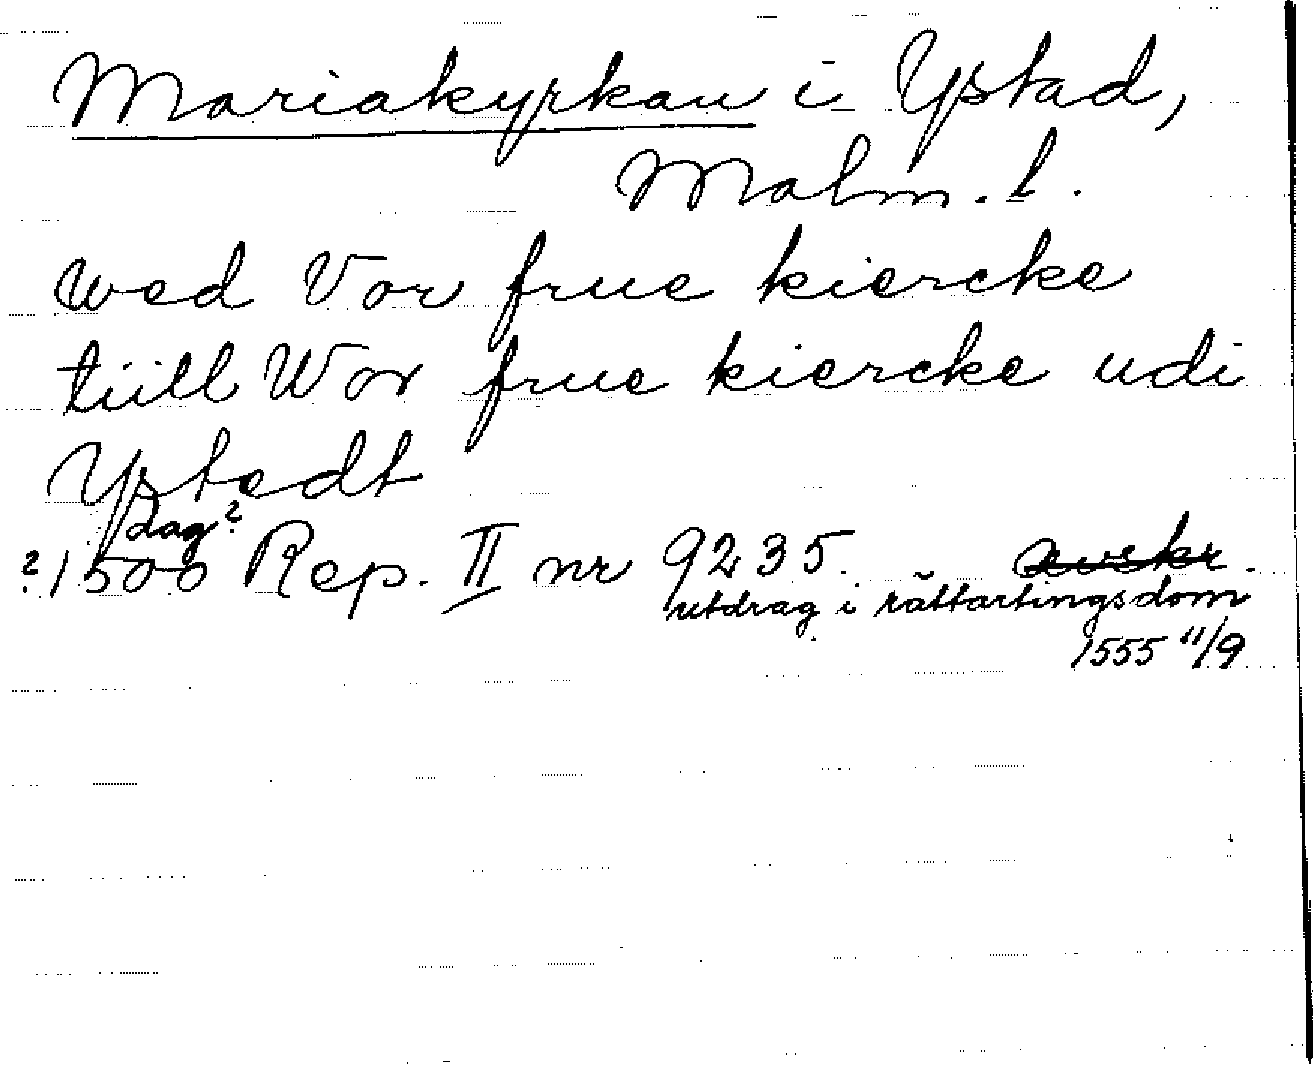 Mariakyrkan i Ystad,
Malm. l.
wed Vor frue kiercke
tiill Wor frue kiercke udi
Ystedt
dag?
?1500 Rep. II nr 9235. avskr.
utdrag i rättartingsdom
1555 11/9